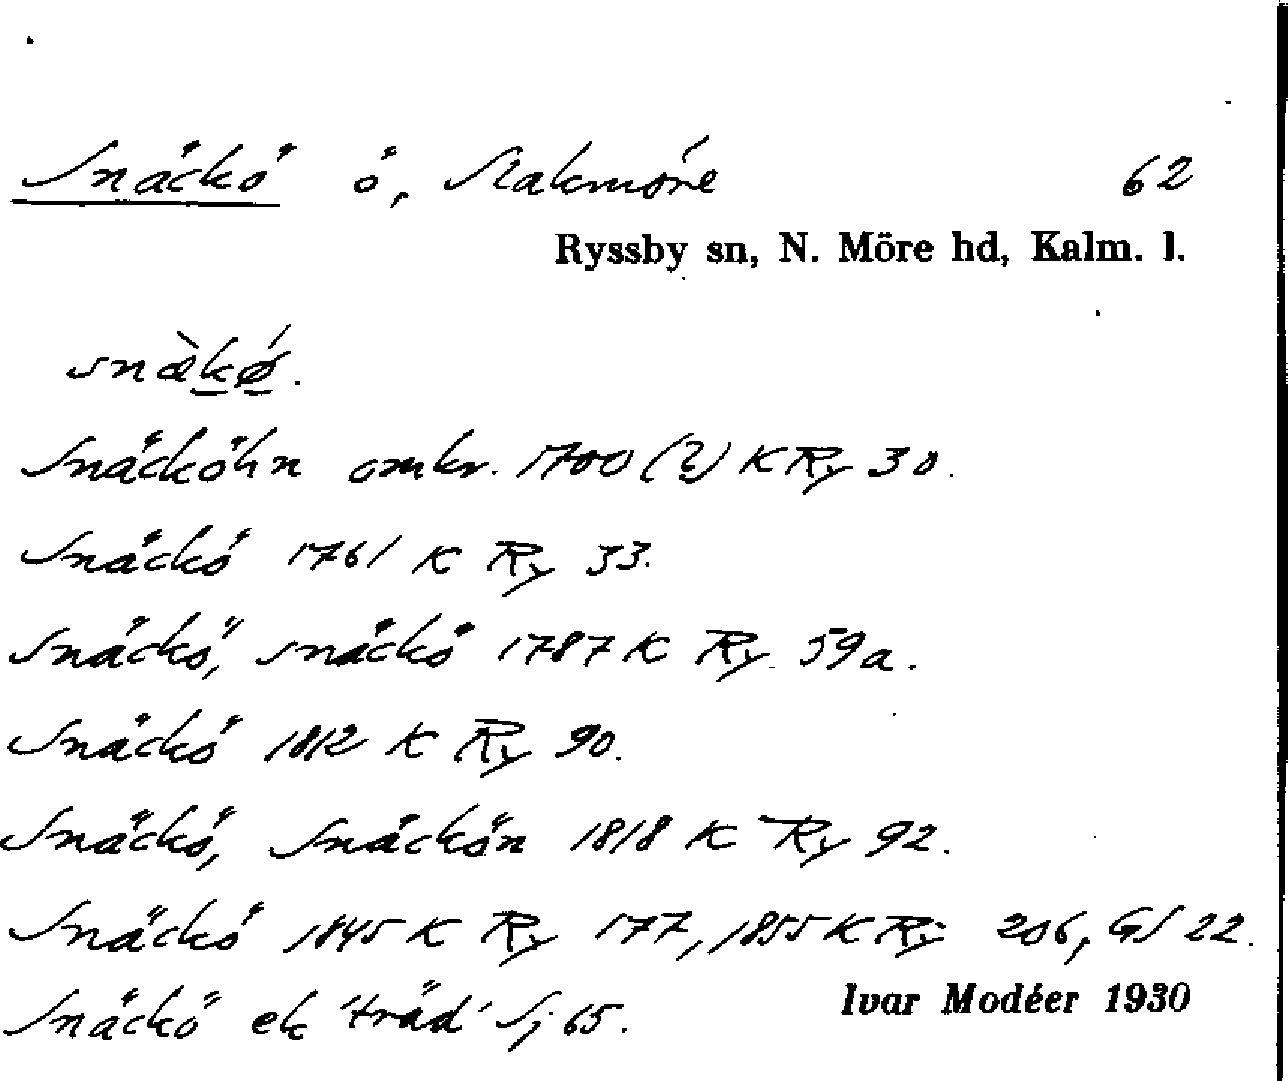 Snäckö ö, Slakmöre 62
Ryssby sn, N. Möre hd, Kalm. l.
snæ̀kǿ.
Snäcköhn omkr. 1700 (?) K Ry 30.
Snäckö 1761 K Ry 33.
Snäckö, snäckö 1787 K Ry 59a.
Snäckö 1812 K Ry 90.
Snäckö, Snäckön 1818 K Ry 92.
Snäckö 1845 K Ry 177, 1855 K Ry 206, GS 22.
Snäckö ek 'träd' Sj 65.
Ivar Modéer 1930